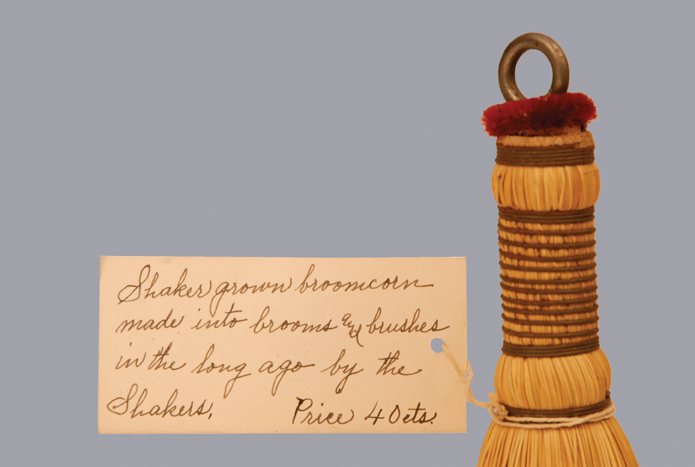 Shaker grown broomcorn
made into brooms and brushes
in the long ago by the
Shakers. Price 40cts.